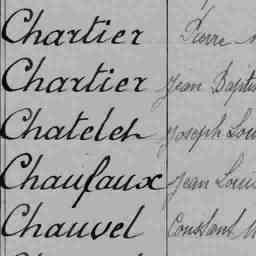 Chartier Pierre
Chartier Jean Baptis
Chatelet Joseph Lou
Chaufaux Jean Loui
Chauvel Constant